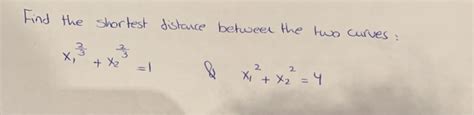 Find the shortest distance between the two curves:
x₁^(2/3) + x₂^(2/3) = 1 & x₁² + x₂² = 4